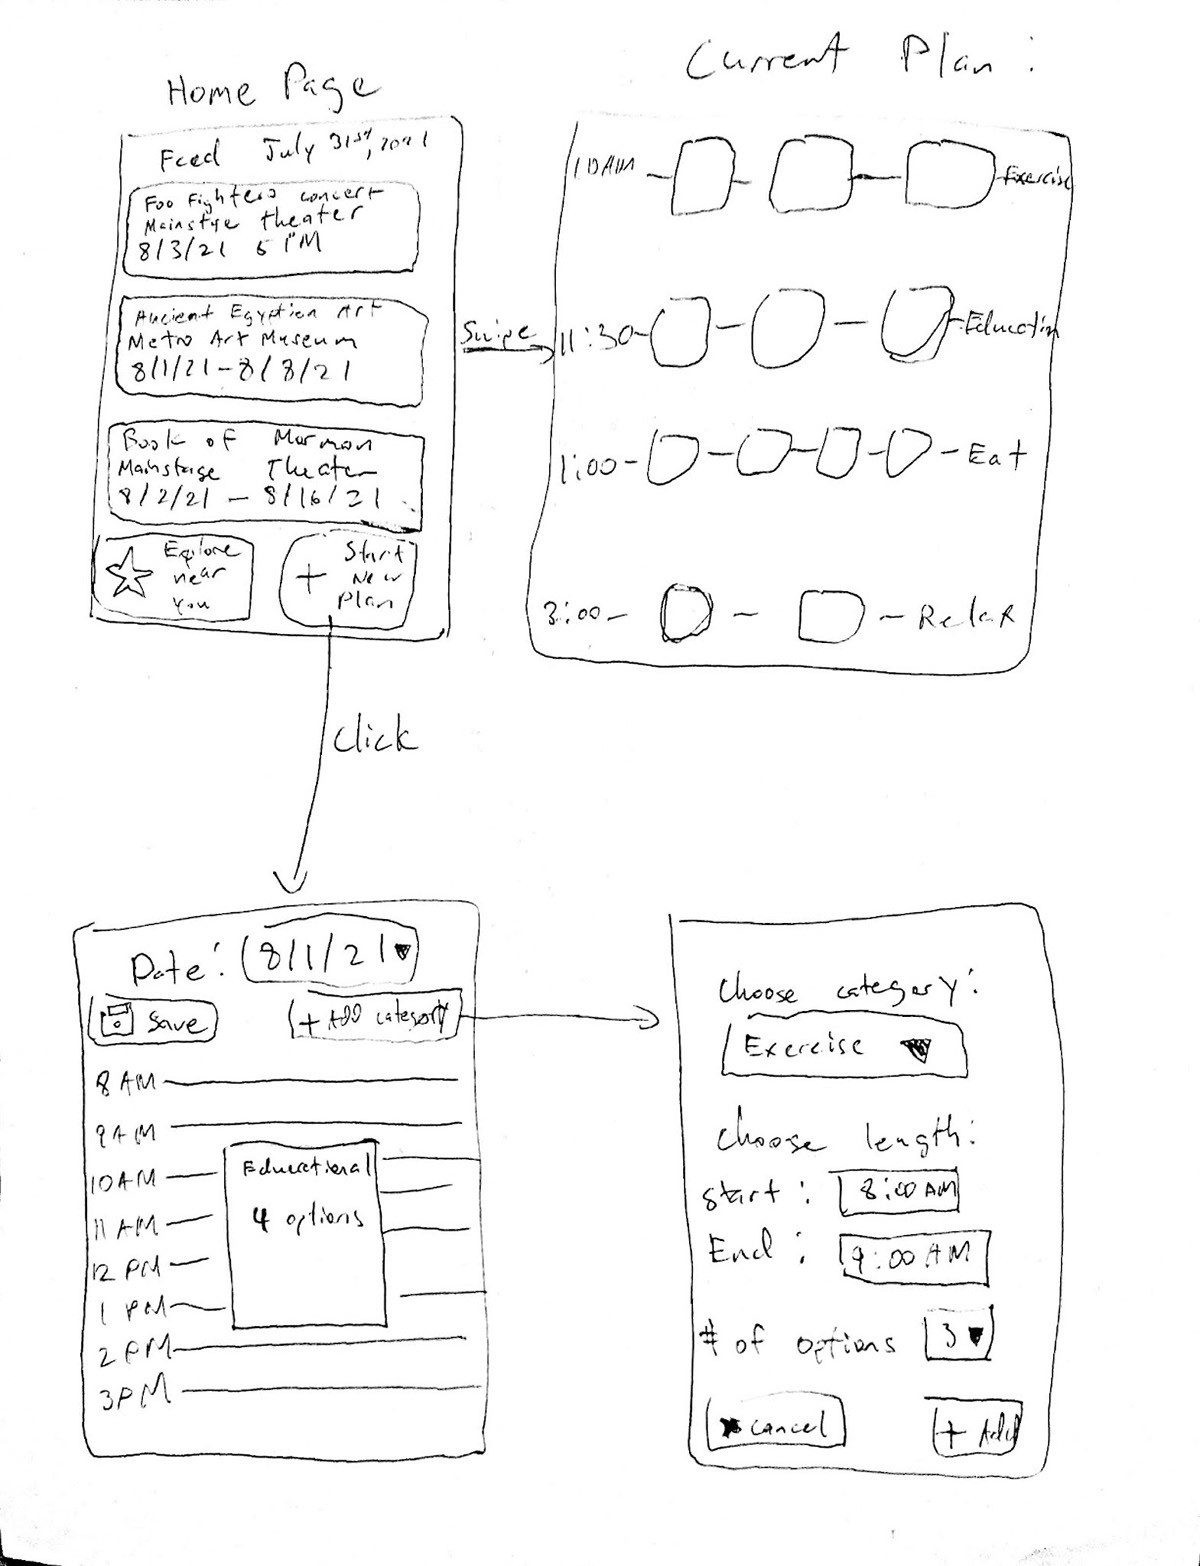 Home Page
Feed July 31st, 2021
Foo Fighters concert
Mainstge theater
8/3/21 5 PM
Ancient Egyption Art
Metro Art Museum
8/1/21 - 8/8/21
Book of Mormon
Mainstage Theater
8/2/21 - 8/16/21
Explore
near
you
+ Start
New
Plan
Swipe
Current Plan:
10AM Exercise
11:30 Education
1:00 Eat
3:00 Relax
Click
Date: 8/1/21
Save
+ ADD category
8 AM
9 AM
10AM
11 AM
12 PM
1 PM
2 PM
3PM
Educational
4 options
Choose category:
Exercise
Choose length:
Start: 8:00 AM
End: 9:00 AM
# of options 3
x Cancel
+ Add